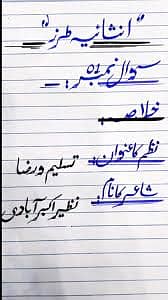 "انشائیہ طرز"
سوال نمبر 01:-
خلاصہ:-
نظم کا عنوان: تسلیم و رضا
شاعر کا نام: نظیر اکبر آبادی